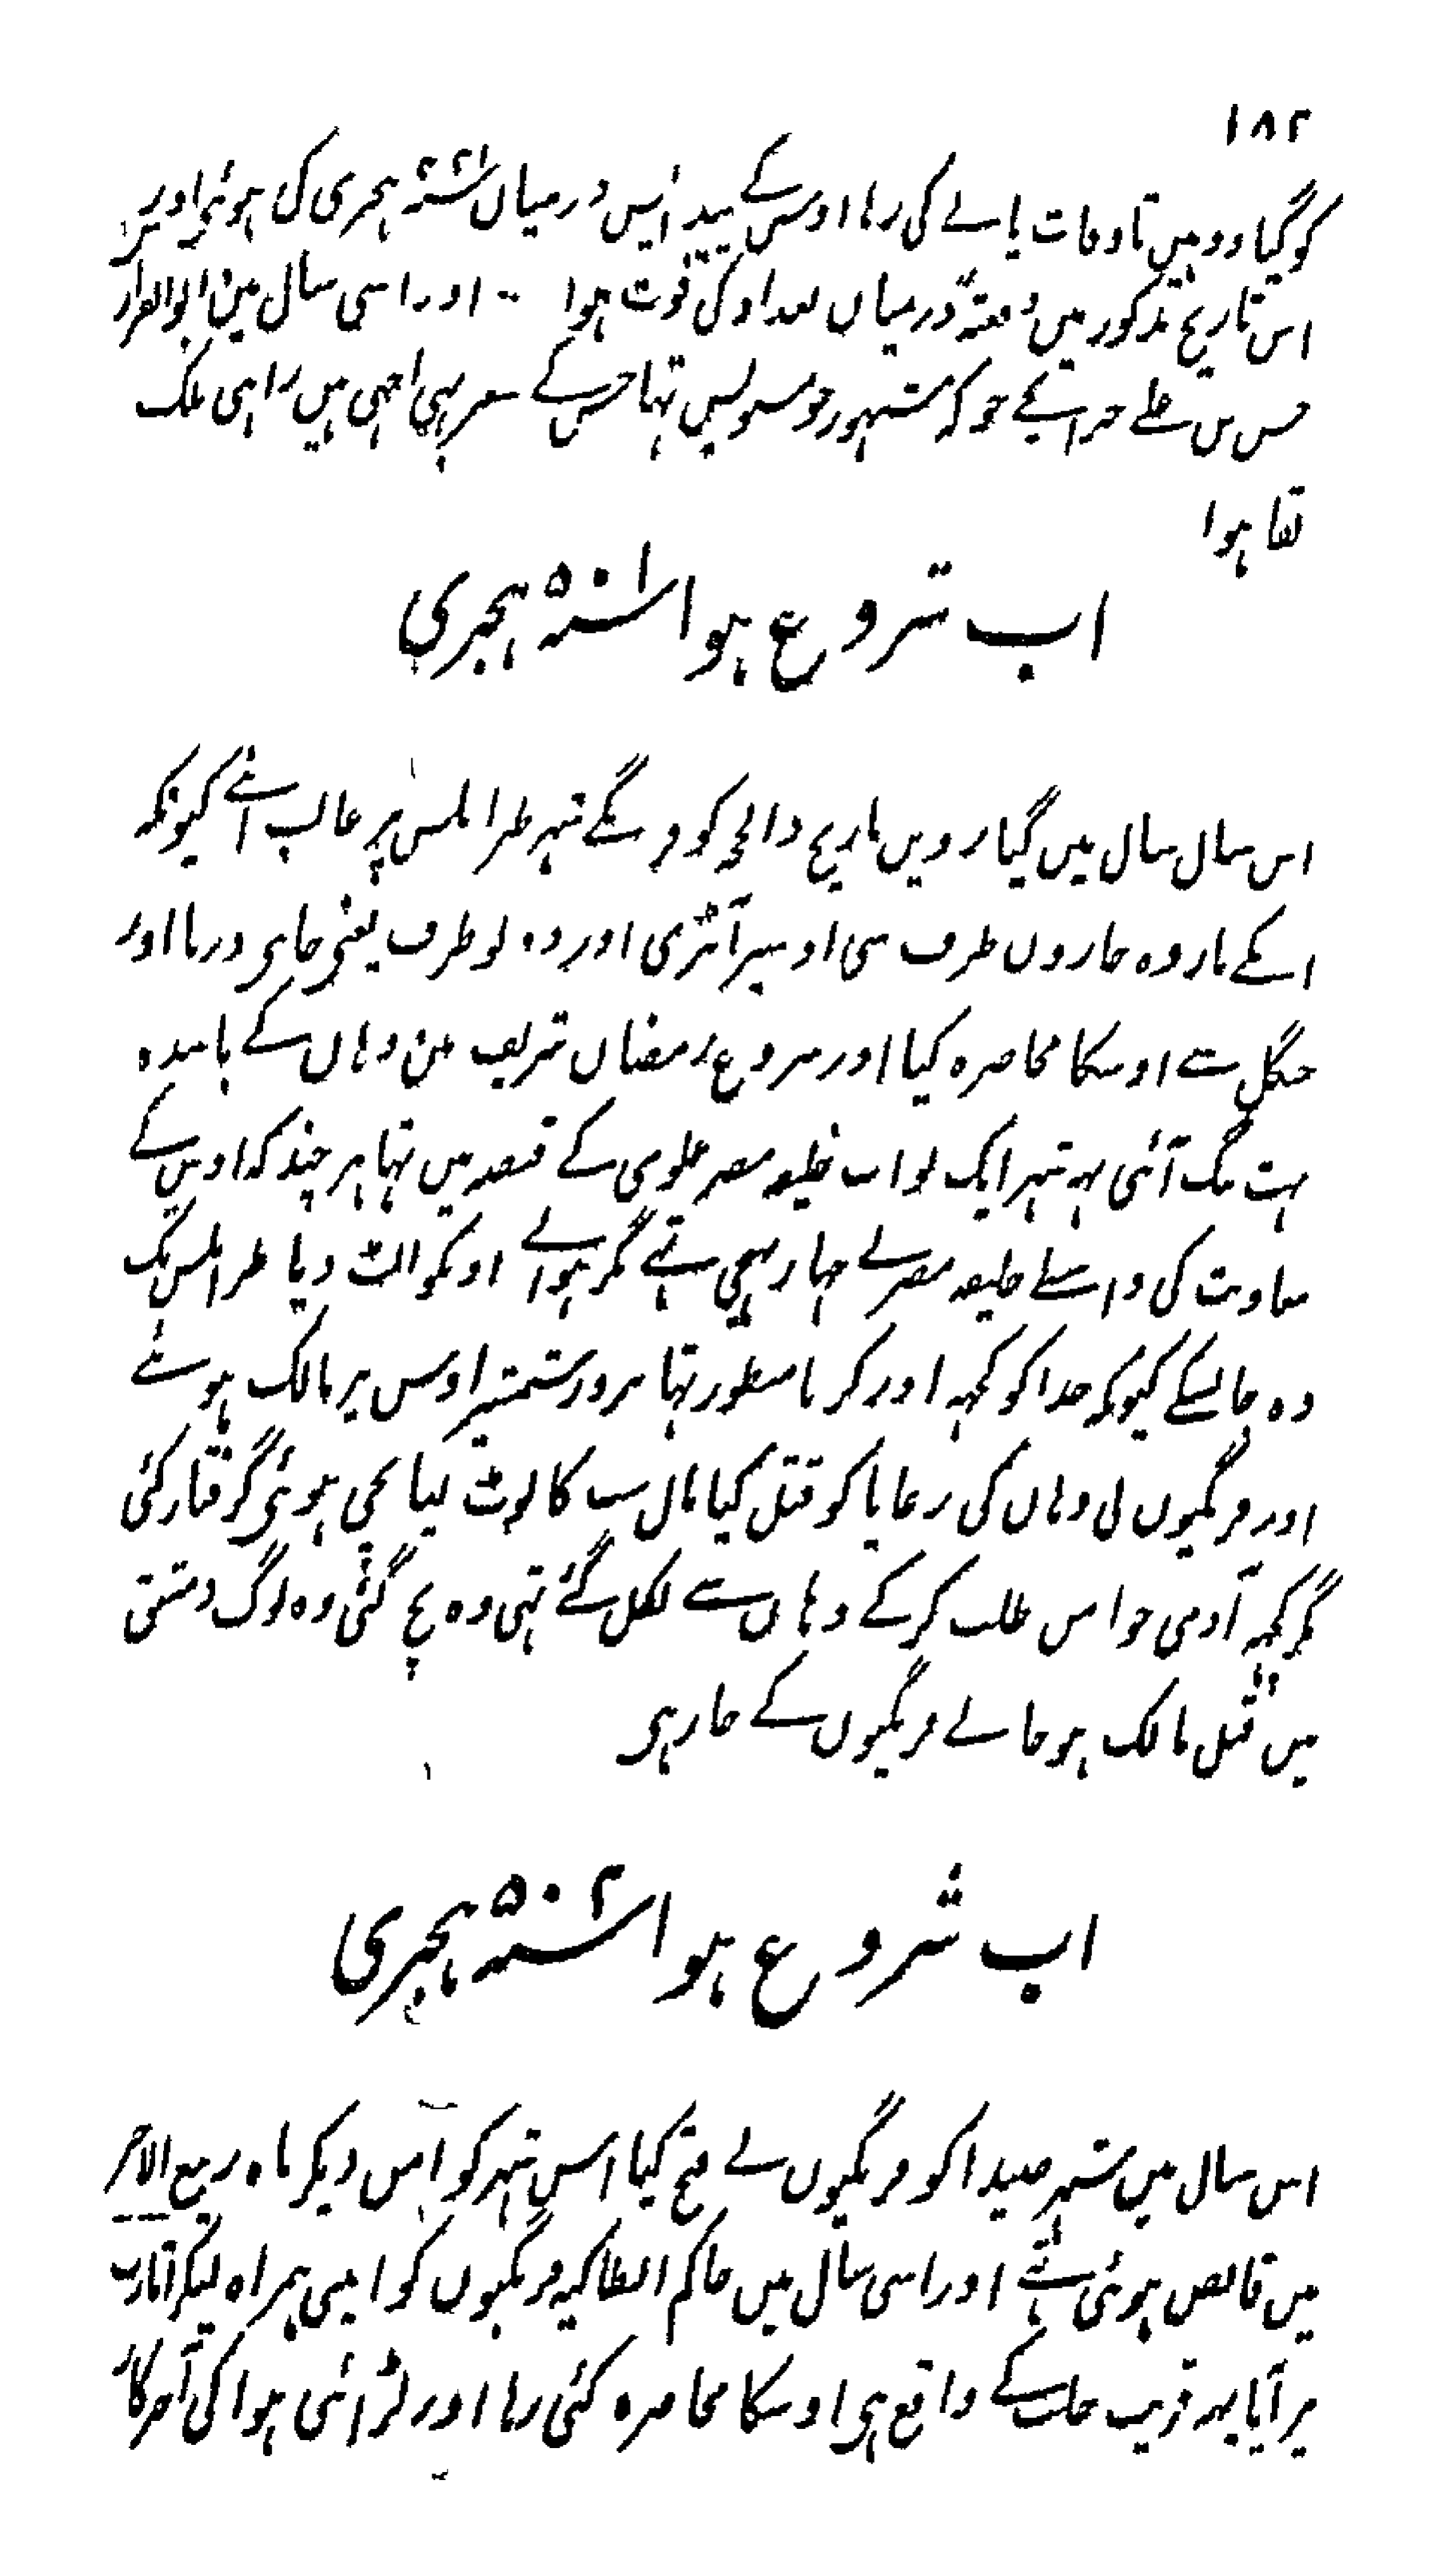 ۱۸۲
کو گیا رو میں تاوفات پانے کی رہا اوس کے پید ایس درمیان ۴۲۱؁ ہجری کی ہوئی اور
اس تاریخ مذکور میں دفعتہً درمیان بغداد کی فوت ہوا - اور اسی سال مین ابو الفوارس
حسن بن علے خوکہ مشہور خوشنویس تہا جس کے شعر بہی اچہی ہیں راہی ملک
بقا ہوا
اب شروع ہوا ۵۰۱؁ ہجری
اس سال سال میں گیارویں تاریخ ذالحجہ کو فرنگے شہر طرابلس پر غالب آئے کیونکہ
اسکے بار وہ چاروں طرف سی اوسپر آئزی اور دونو طرف یعنی جانب دریا اور
جنگل سے اوسکا محاصرہ کیا اور شروع رمضان شریف مین وہاں کے باشندہ
بہت تنگ آئی یہہ شہر ایک نواب خلیفہ مصر علوی کے قبضہ میں تہا ہر چند کہ اوس کے
معاونت کی واسطے خلیفہ مصر نے جہاز بہیجی تہے مگر ہوا نے اونکو الٹ دیا طرابلس تک
وہ جا نسکے کیونکہ خدا کو کچہہ اور کرنا منظور تہا بزور شمشیر اوس پر مالک ہوئے
اور فرنگیوں نی وہاں کی رعایا کو قتل کیا مال سب کا لوٹ لیا بچی ہوئی گرفتار کئی
مگر کچہہ آدمی جو امن طلب کرکے وہاں سے نکل گئے تہی وہ بچ گئی وہ لوگ دمشق
میں قبل مالک ہو جانے فرنگیوں کے جا رہی
اب شروع ہوا ۵۰۲؁ ہجری
اس سال میں شہر صیدا کو فرنگیوں نے فتح کیا اس شہر کو امن دیکر ماہ ربیع الاخر
میں قابض ہوئی تہے اور اسی سال میں حاکم انطاکیہ فرنگیوں کو اپنی ہمراہ لیکر اثارب
پر آیا یہہ قریب حلب کے واقع ہی اوسکا محاصرہ کئی رہا اور لڑائی ہوا کی آخرکار